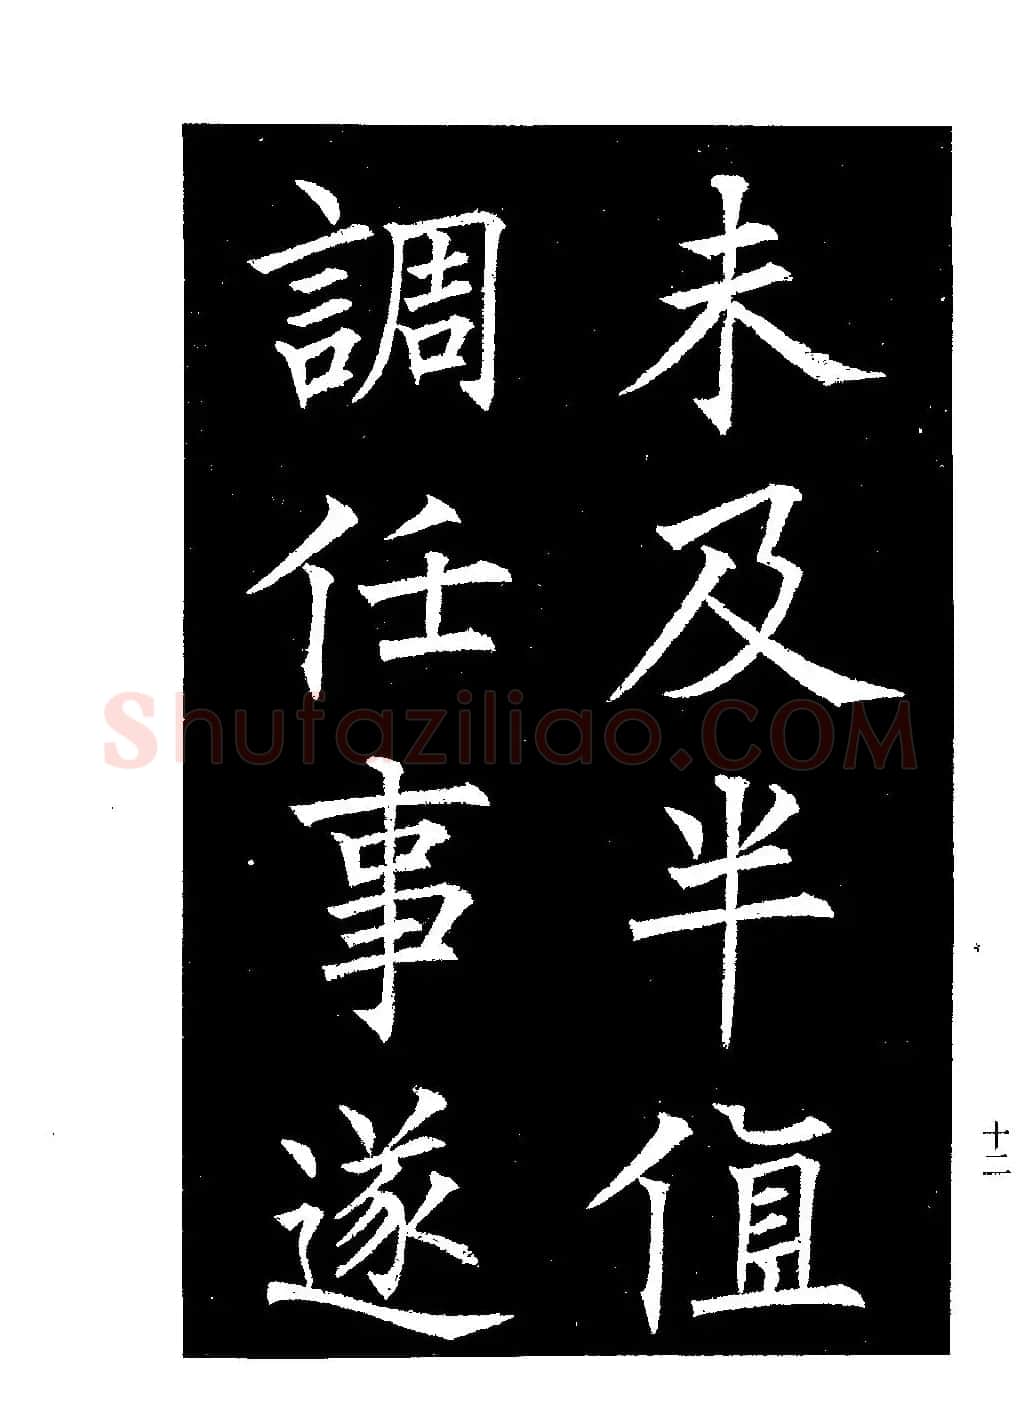 未及半值
調任事遂
十二
Shufaziliao.COM